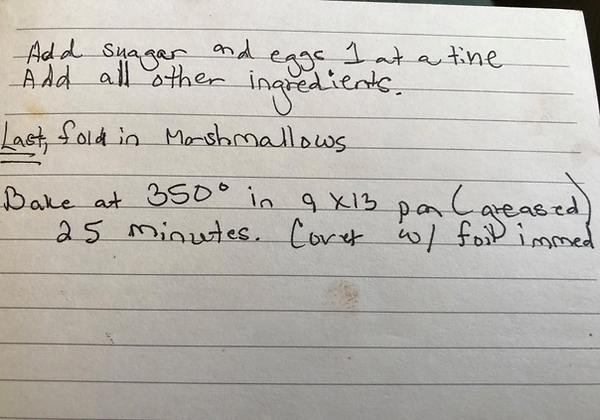 Add suagar and eggs 1 at a time
Add all other ingredients.
Last, fold in Marshmallows
Bake at 350° in 9 x 13 pan (greased)
25 minutes. Cover w/ foil immed